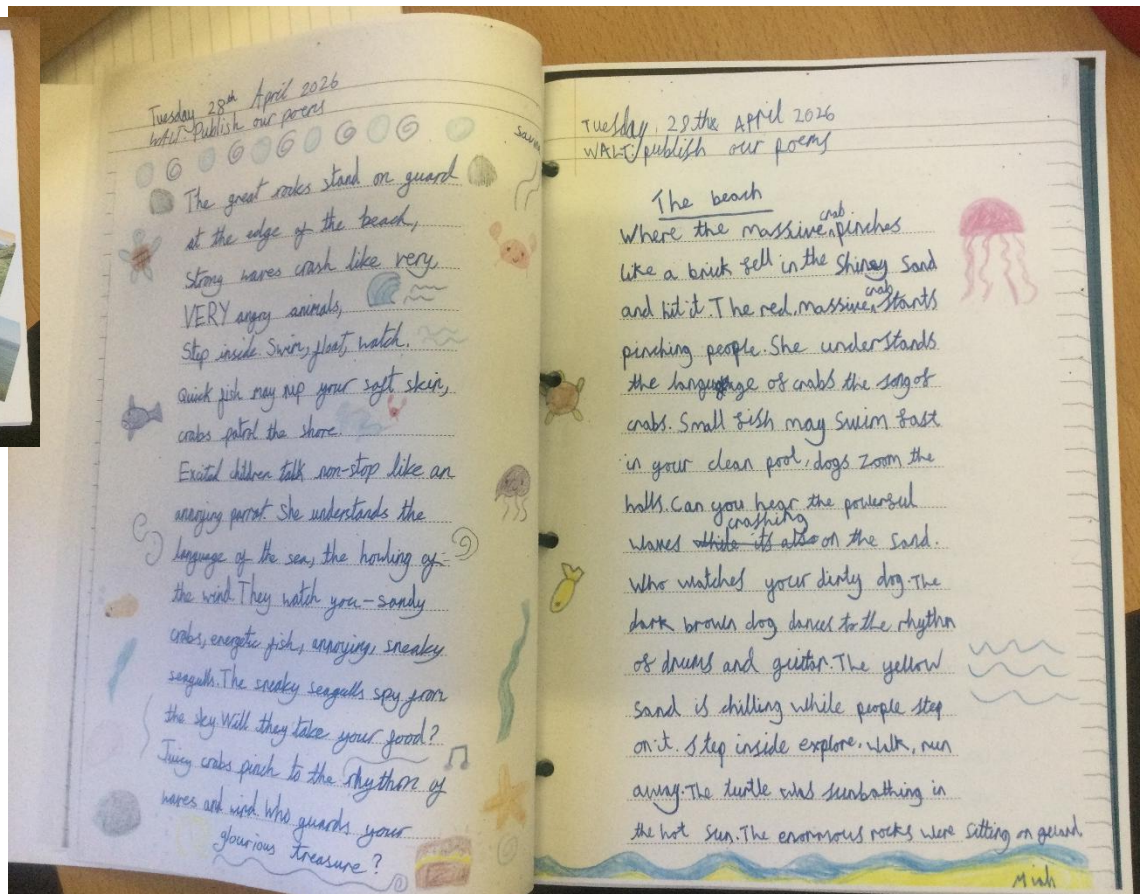 Tuesday 28th April 2026
WALT: Publish our poems
The great rocks stand on guard
at the edge of the beach,
Strong waves crash like very,
VERY angry animals,
Step inside. Swim, float, watch.
Quick fish may nip your soft skin,
crabs patrol the shore.
Excited children talk non-stop like an
annoying parrot. She understands the
language of the sea, the howling of
the wind. They watch you - sandy
crabs, energetic fish, annoying, sneaky
seagulls. The sneaky seagulls spy from
the sky. Will they take your food?
Juicy crabs pinch to the rhythm of
waves and wind. Who guards your
glourious treasure?
Tuesday, 28the April 2026
WALT: publish our poems
The beach
Where the massive crab pinches
like a brick fell in the Shiney Sand
and hit it. The red, massive crab starts
pinching people. She understands
the language of crabs the song of
crabs. Small fish may Swim fast
in your clean pool, dogs zoom the
halls. Can you hear the powerful
waves crashing on the sand.
Who watches your dirty dog. The
dark brown dog dances to the rhythm
of drums and guitar. The yellow
Sand is chilling while people step
on it. Step inside explore. Walk, run
away. The turtle was sunbathing in
the hot Sun. The enormous rocks were sitting on